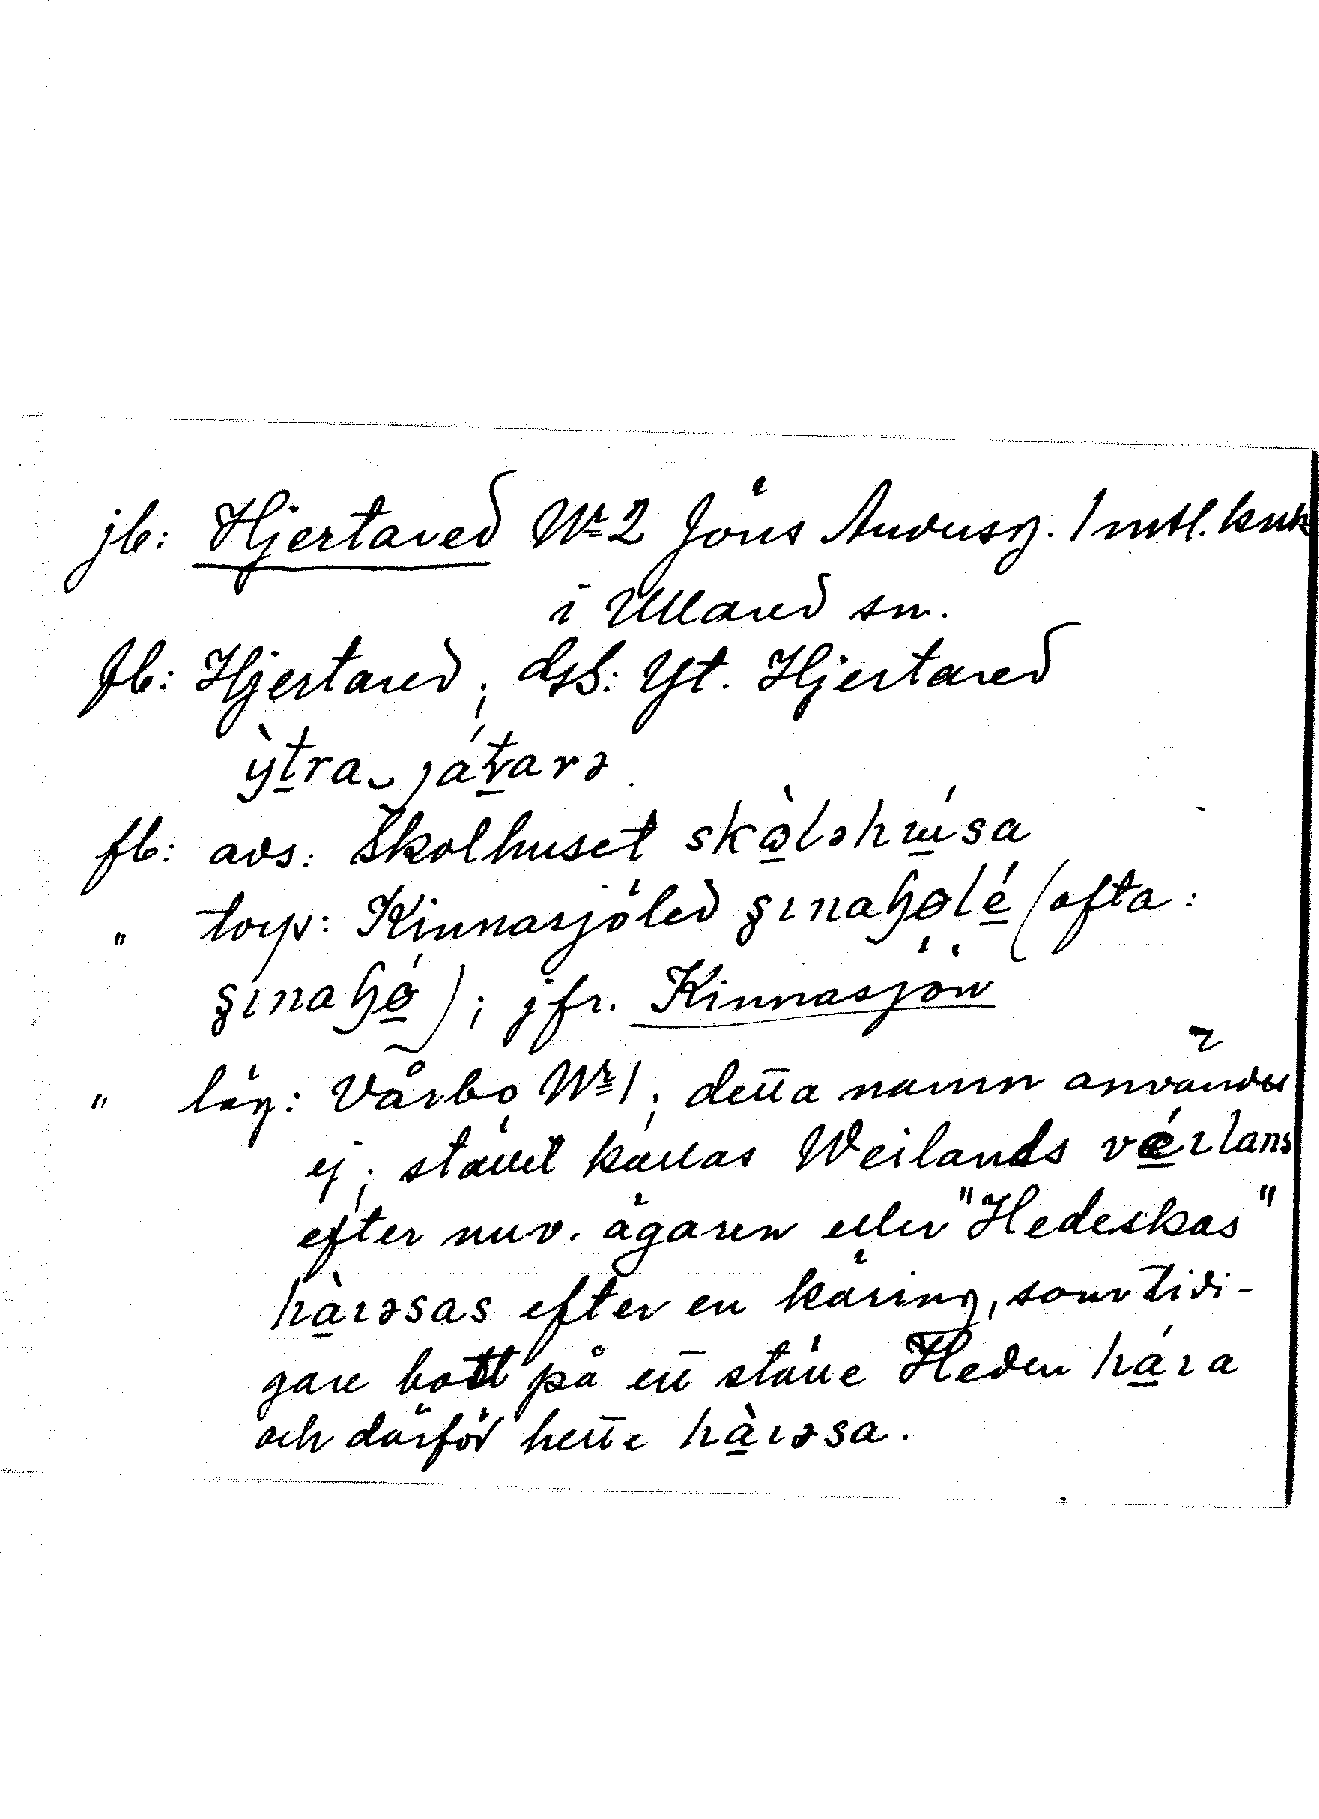 jb: Hjertared № 2 Jöns Andersg. 1 mtl. krsk
i Ullared sn.
fb: Hjertared; dss: Yt. Hjertared
ỳtra játarə
fb: avs: Skolhuset skòləhúsa
" torp: Kinnasjöled şınaɧølé (ofta:
şınaɧǿ); jfr. Kinnasjön
" läg: Vårbo № 1; detta namn användes
ej; stället kallas Weilands véılans
efter nuv. ägaren eller "Hedeskas"
hàıəsas efter en käring, som tidi-
gare bott på ett ställe Heden háıa
och därför hette hàıəsa.